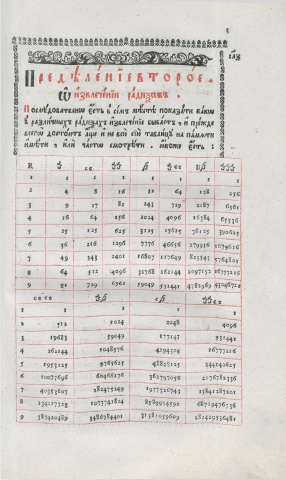 Предѣленїе второе.
Ѡ извлеченїи радиѯовъ.
Послѣдователно есть в семъ мѣстѣ показати како
в различныхъ радиѯахъ извлеченїе бываетъ, и прежде
имѣти, или часто смотрѣти. есть:
R ... сс
1 1 1 1 1 1 1 1
2 4 8 16 32 64 128 256
3 9 27 81 243 729 2187 6561
4 16 64 256 1024 4096 16384 65536
5 25 125 625 3125 15625 78125 390625
6 36 216 1296 7776 46656 279936 1679616
7 49 343 2401 16807 117649 823543 5764801
8 64 512 4096 32768 262144 2097152 16777216
9 81 729 6561 59049 531441 4782969 43046721
сс сс
1 1 1 1
2 512 1024 2048 4096
3 19683 59049 177147 531441
4 262144 1048576 4194304 16777216
5 1953125 9765625 48828125 244140625
6 10077696 60466176 362797056 2176782336
7 40353607 282475249 1977326743 13841287201
8 134217728 1073741824 8589934592 68719476736
9 387420489 3486784401 31381059609 282429536481